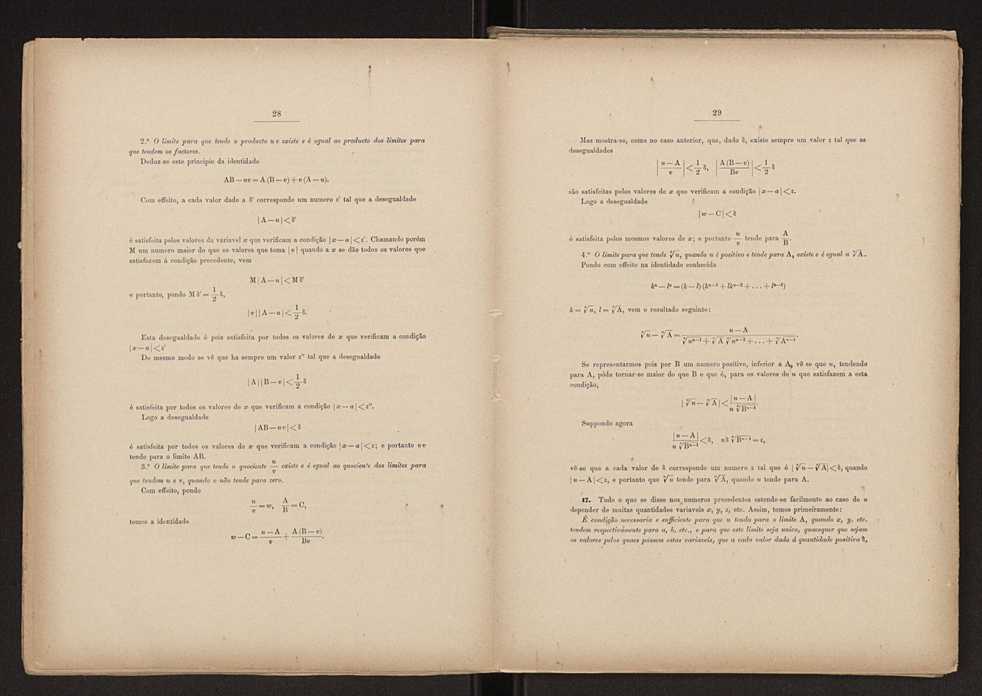 28
2.º O limite para que tende o producto uv existe e é egual ao producto dos limites para
que tendem os factores.
Deduz-se este principio da identidade
AB — uv = A (B — v) + v (A — u).
Com effeito, a cada valor dado a δ' corresponde um numero ε' tal que a desegualdade
| A — u | < δ'
é satisfeita pelos valores da variavel x que verificam a condição | x — a | < ε'. Chamando porém
M um numero maior do que os valores que toma | v | quando a x se dão todos os valores que
satisfazem á condição precedente, vem
M | A — u | < M δ'
e portanto, pondo M δ' = 1/2 δ,
| v | | A — u | < 1/2 δ.
Esta desegualdade é pois satisfeita por todos os valores de x que verificam a condição
| x — a | < ε'
Do mesmo modo se vê que ha sempre um valor ε'' tal que a desegualdade
| A | | B — v | < 1/2 δ
é satisfeita por todos os valores de x que verificam a condição | x — a | < ε''.
Logo a desegualdade
| AB — uv | < δ
é satisfeita por todos os valores de x que verificam a condição | x — a | < ε; e portanto uv
tende para o limite AB.
3.º O limite para que tende o quociente u/v existe e é egual ao quociente dos limites para
que tendem u e v, quando v não tende para zero.
Com effeito, pondo
u/v = w, A/B = C,
temos a identidade
w — C = (u — A)/v + A (B — v)/Bv.
29
Mas mostra-se, como no caso anterior, que, dado δ, existe sempre um valor ε tal que as
desegualdades
| (u — A)/v | < 1/2 δ, | A (B — v)/Bv | < 1/2 δ
são satisfeitas pelos valores de x que verificam a condição | x — a | < ε.
Logo a desegualdade
| w — C | < δ
é satisfeita pelos mesmos valores de x; e portanto u/v tende para A/B.
4.º O limite para que tende ⁿ√u, quando u é positivo e tende para A, existe e é egual a ⁿ√A.
Pondo com effeito na identidade conhecida
kⁿ — lⁿ = (k — l) (kⁿ⁻¹ + lkⁿ⁻² + . . . + lⁿ⁻¹)
k = ⁿ√u, l = ⁿ√A, vem o resultado seguinte:
ⁿ√u — ⁿ√A = (u — A)/(ⁿ√uⁿ⁻¹ + ⁿ√A ⁿ√uⁿ⁻² + . . . + ⁿ√Aⁿ⁻¹).
Se representarmos pois por B um numero positivo, inferior a A, vê se que u, tendendo
para A, póde tornar-se maior do que B e que é, para os valores de u que satisfazem a esta
condição,
| ⁿ√u — ⁿ√A | < | u — A |/(n ⁿ√Bⁿ⁻¹)
Suppondo agora
| u — A |/(n ⁿ√Bⁿ⁻¹) < δ, nδ ⁿ√Bⁿ⁻¹ = ε,
vê-se que a cada valor de δ corresponde um numero ε tal que é | ⁿ√u — ⁿ√A | < δ, quando
| u — A | < ε, e portanto que ⁿ√u tende para ⁿ√A, quando u tende para A.
17. Tudo o que se disse nos numeros precedentes estende-se facilmente ao caso de u
depender de muitas quantidades variaveis x, y, z, etc. Assim, temos primeiramente:
É condição necessaria e sufficiente para que u tenda para o limite A, quando x, y, etc.
tendem respectivamente para a, b, etc., e para que este limite seja unico, quaesquer que sejam
os valores pelos quaes passem estas variaveis, que a cada valor dado á quantidade positiva δ,